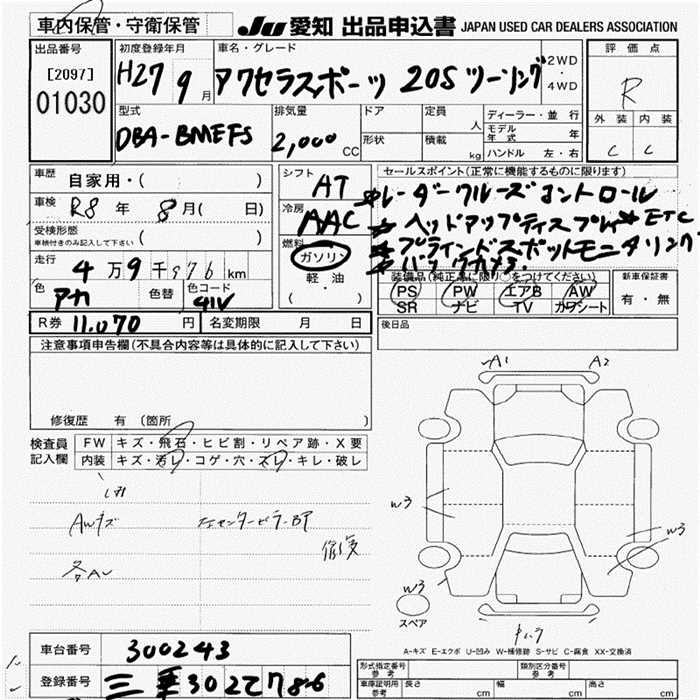 車内保管・守衛保管
JU 愛知 出品申込書 JAPAN USED CAR DEALERS ASSOCIATION
出品番号
[2097]
01030
初度登録年月
H27 9月
車名・グレード
アクセラスポーツ 20S ツーリング
2WD
・
4WD
評価点
R
外装 内装
C C
型式
DBA-BMEFS
排気量
2,000 CC
ドア
形状
定員 人
積載 kg
ディーラー・並行
モデル年式 年
ハンドル 左・右
車歴
自家用・( )
車検
R8年 8月( 日)
受検形態
車検付きのみ記入して下さい ( )
走行
4万9千976km
色
アカ
色替
色コード
41V
シフト
AT
冷房
AAC
燃料
ガソリン
軽・油
( ・ )
セールスポイント(正常に機能するものに限ります)
レーダークルーズコントロール
ヘッドアップディスプレイ ETC
ブラインドスポットモニタリング
バックカメラ
装備品(純正品に限り○をつけてください)
PS PW エアB AW
SR ナビ TV カワシート
新車保証書
有・無
R券 11,070円
名変期限 月 日
後日品
注意事項申告欄(不具合内容等は具体的に記入して下さい)
修復歴 有 (箇所 )
検査員記入欄
FW キズ・飛石・ヒビ割・リペア跡・X要
内装 キズ・汚レ・コゲ・穴・スレ・キレ・破レ
AWキズ
右センターピラーBP
修復
各AU
A1 A2
W3
W3
W3
スペア
A-キズ E-エクボ U-凹み W-補修跡 S-サビ C-腐食 XX-交換済
車台番号
300243
登録番号
三重302て786
形式指定番号
参考
類別区分番号
参考
車庫証明用
参考
長さ cm
幅 cm
高さ cm